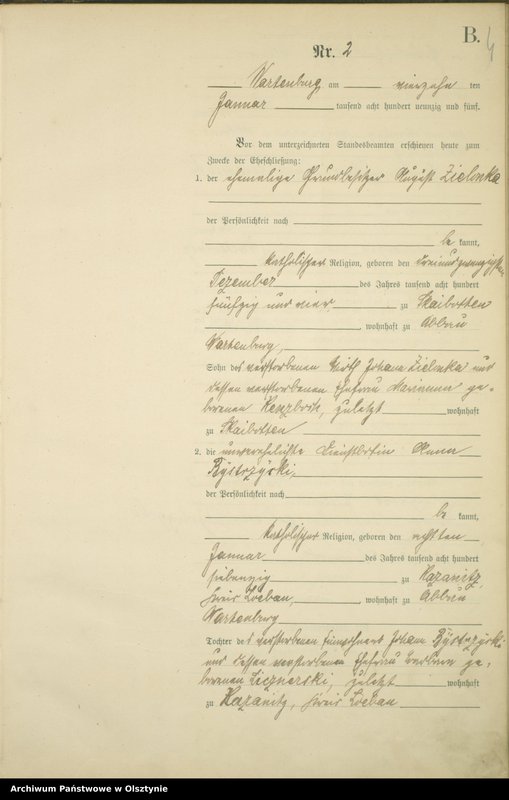 B.
4
Nr. 2
Wartenburg, am vierzehn ten
Januar tausend acht hundert neunzig und fünf.
Vor dem unterzeichneten Standesbeamten erschienen heute zum
Zwecke der Eheschließung:
1. der ehemalige Grundbesitzer August Zielonka
der Persönlichkeit nach
be kannt,
katholischer Religion, geboren den dreiundzwanzigsten
Dezember des Jahres tausend acht hundert
fünfzig und vier zu Skaibotten
, wohnhaft zu Abbau
Wartenburg,
Sohn des verstorbenen Wirth Johann Zielonka und
dessen verstorbenen Ehefrau Marianna ge-
borenen zuletzt wohnhaft
zu Skaibotten
2. die unverehelichte Dienstbotin Anna
Bystrzycki,
der Persönlichkeit nach
be kannt,
katholischer Religion, geboren den achtten
Januar des Jahres tausend acht hundert
siebenzig zu Kazanitz,
Kreis Loebau, , wohnhaft zu Abbau
Wartenburg
Tochter des verstorbenen Einwohners Johann Bystrzycki
und dessen verstorbenen Ehefrau Barbara ge-
borenen Licznerski, zuletzt wohnhaft
zu Kazanitz, Kreis Loebau
Archiwum Państwowe w Olsztynie